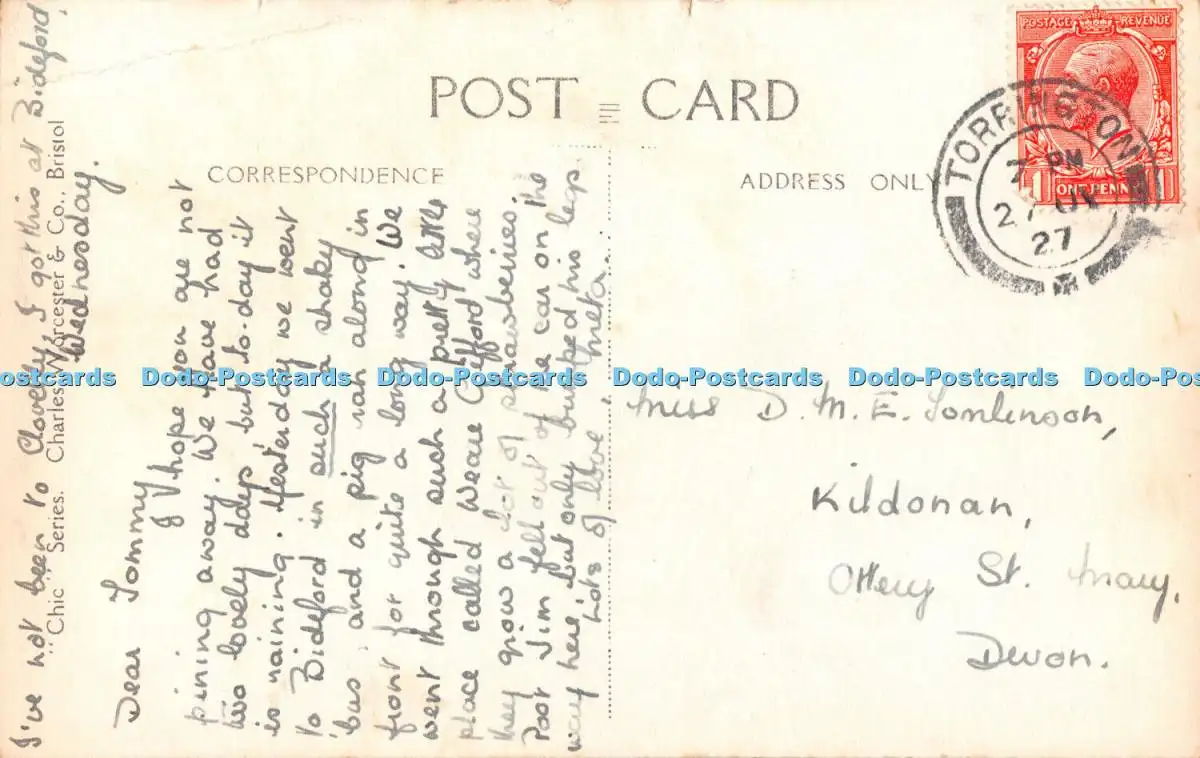 POST CARD
CORRESPONDENCE
ADDRESS ONLY
POSTAGE REVENUE
1 ONE PENNY 1
TORRINGTON
7 PM
27
27
I've not been to Clovelly, I got this at Bideford.
"Chic" Series. Charles Worcester & Co., Bristol
Wednesday.
Dear Tommy
I hope you are not
pining away. We have had
two lovely days but to-day it
is raining. Yesterday we went
to Bideford in such a shaky
'bus, and a pig ran along in
front for quite a long way. We
went through such a pretty little
place called Weare Gifford where
they grow a lot of strawberries.
Poor Jim fell out of the car on the
way here, but only bumped his legs
Lots of love, Meta.
Miss D. M. E. Tomlinson,
Kildonan,
Ottery St. Mary,
Devon.
Dodo-Postcards Dodo-Postcards Dodo-Postcards Dodo-Postcards Dodo-Postcards Dodo-Postcards